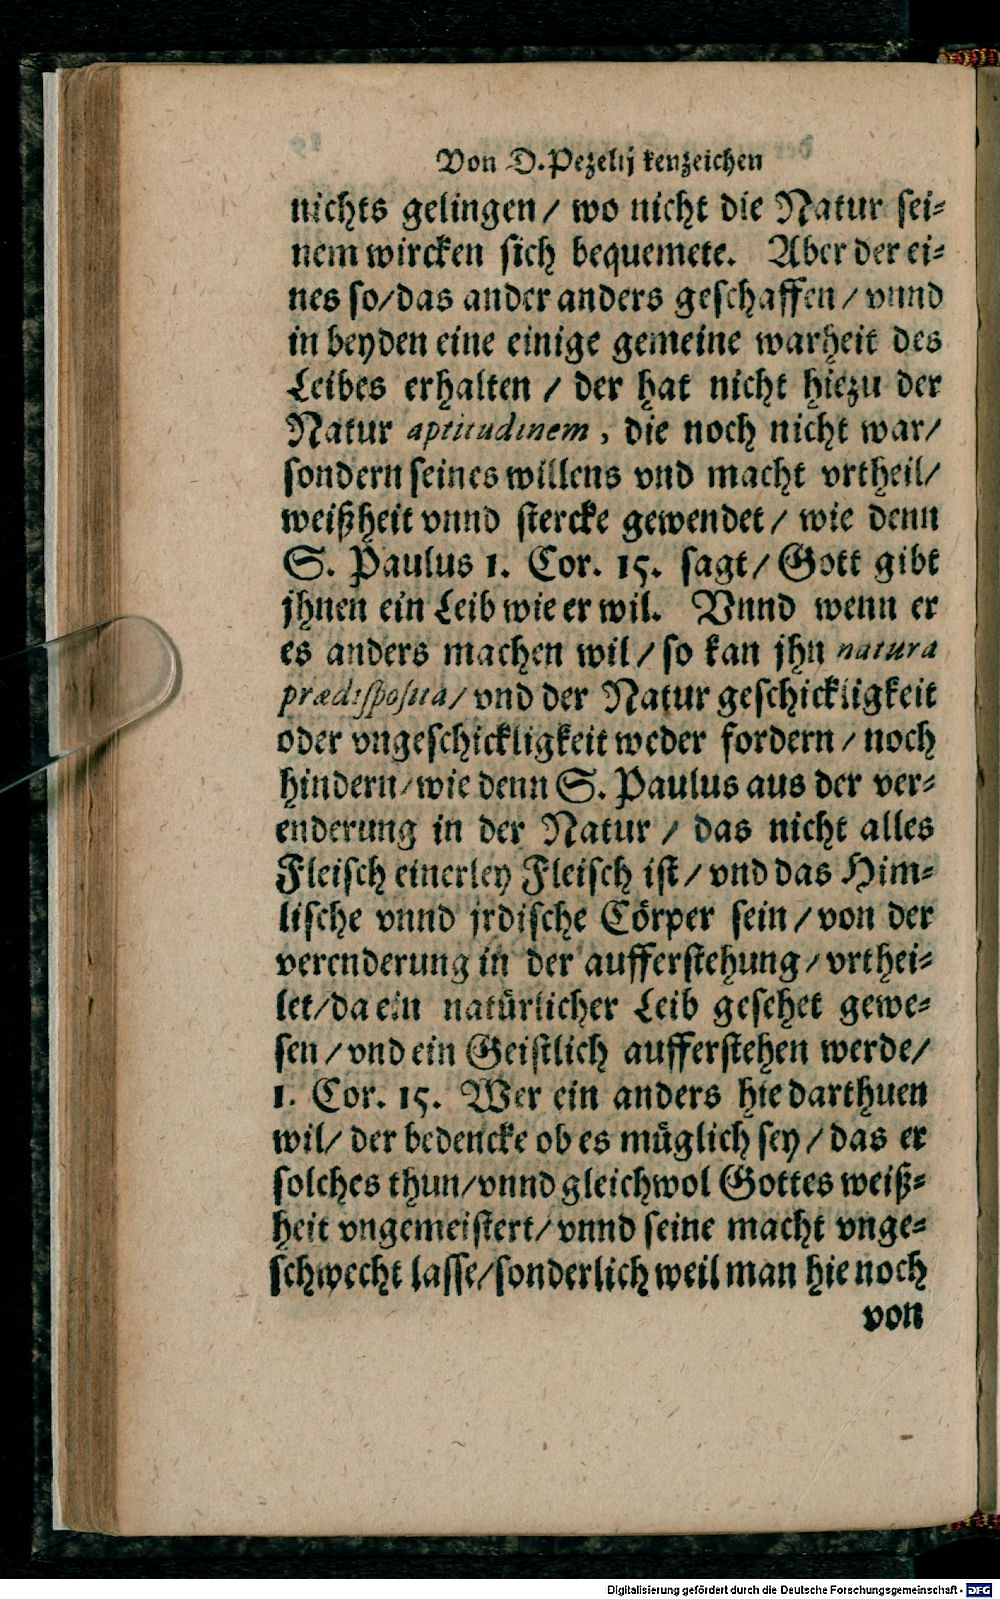 Von D. Pezelij kenzeichen
nichts gelingen / wo nicht die Natur sei-
nem wircken sich bequemete. Aber der ei-
nes so/das ander anders geschaffen / vnnd
in beyden eine einige gemeine warheit des
Leibes erhalten / der hat nicht hiezu der
Natur aptitudinem, die noch nicht war/
sondern seines willens vnd macht vrtheil/
weißheit vnnd stercke gewendet / wie denn
S. Paulus 1. Cor. 15. sagt / Gott gibt
jhnen ein Leib wie er wil. Vnnd wenn er
es anders machen wil / so kan jhn natura
prædisposita/ vnd der Natur geschickligkeit
oder vngeschickligkeit weder fordern / noch
hindern/wie denn S. Paulus aus der ver-
enderung in der Natur / das nicht alles
Fleisch einerley Fleisch ist / vnd das Him-
lische vnnd jrdische Cörper sein / von der
verenderung in der aufferstehung / vrthei-
let/da ein natürlicher Leib gesehet gewe-
sen / vnd ein Geistlich aufferstehen werde/
1. Cor. 15. Wer ein anders hie darthuen
wil/ der bedencke ob es müglich sey / das er
solches thun/vnnd gleichwol Gottes weiß-
heit vngemeistert/vnnd seine macht vnge-
schwecht lasse/sonderlich weil man hie noch
von
Digitalisierung gefördert durch die Deutsche Forschungsgemeinschaft - DFG